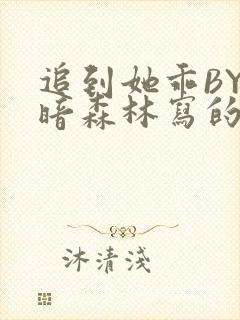 追到她乖BY
暗森林寫的
沐清淺